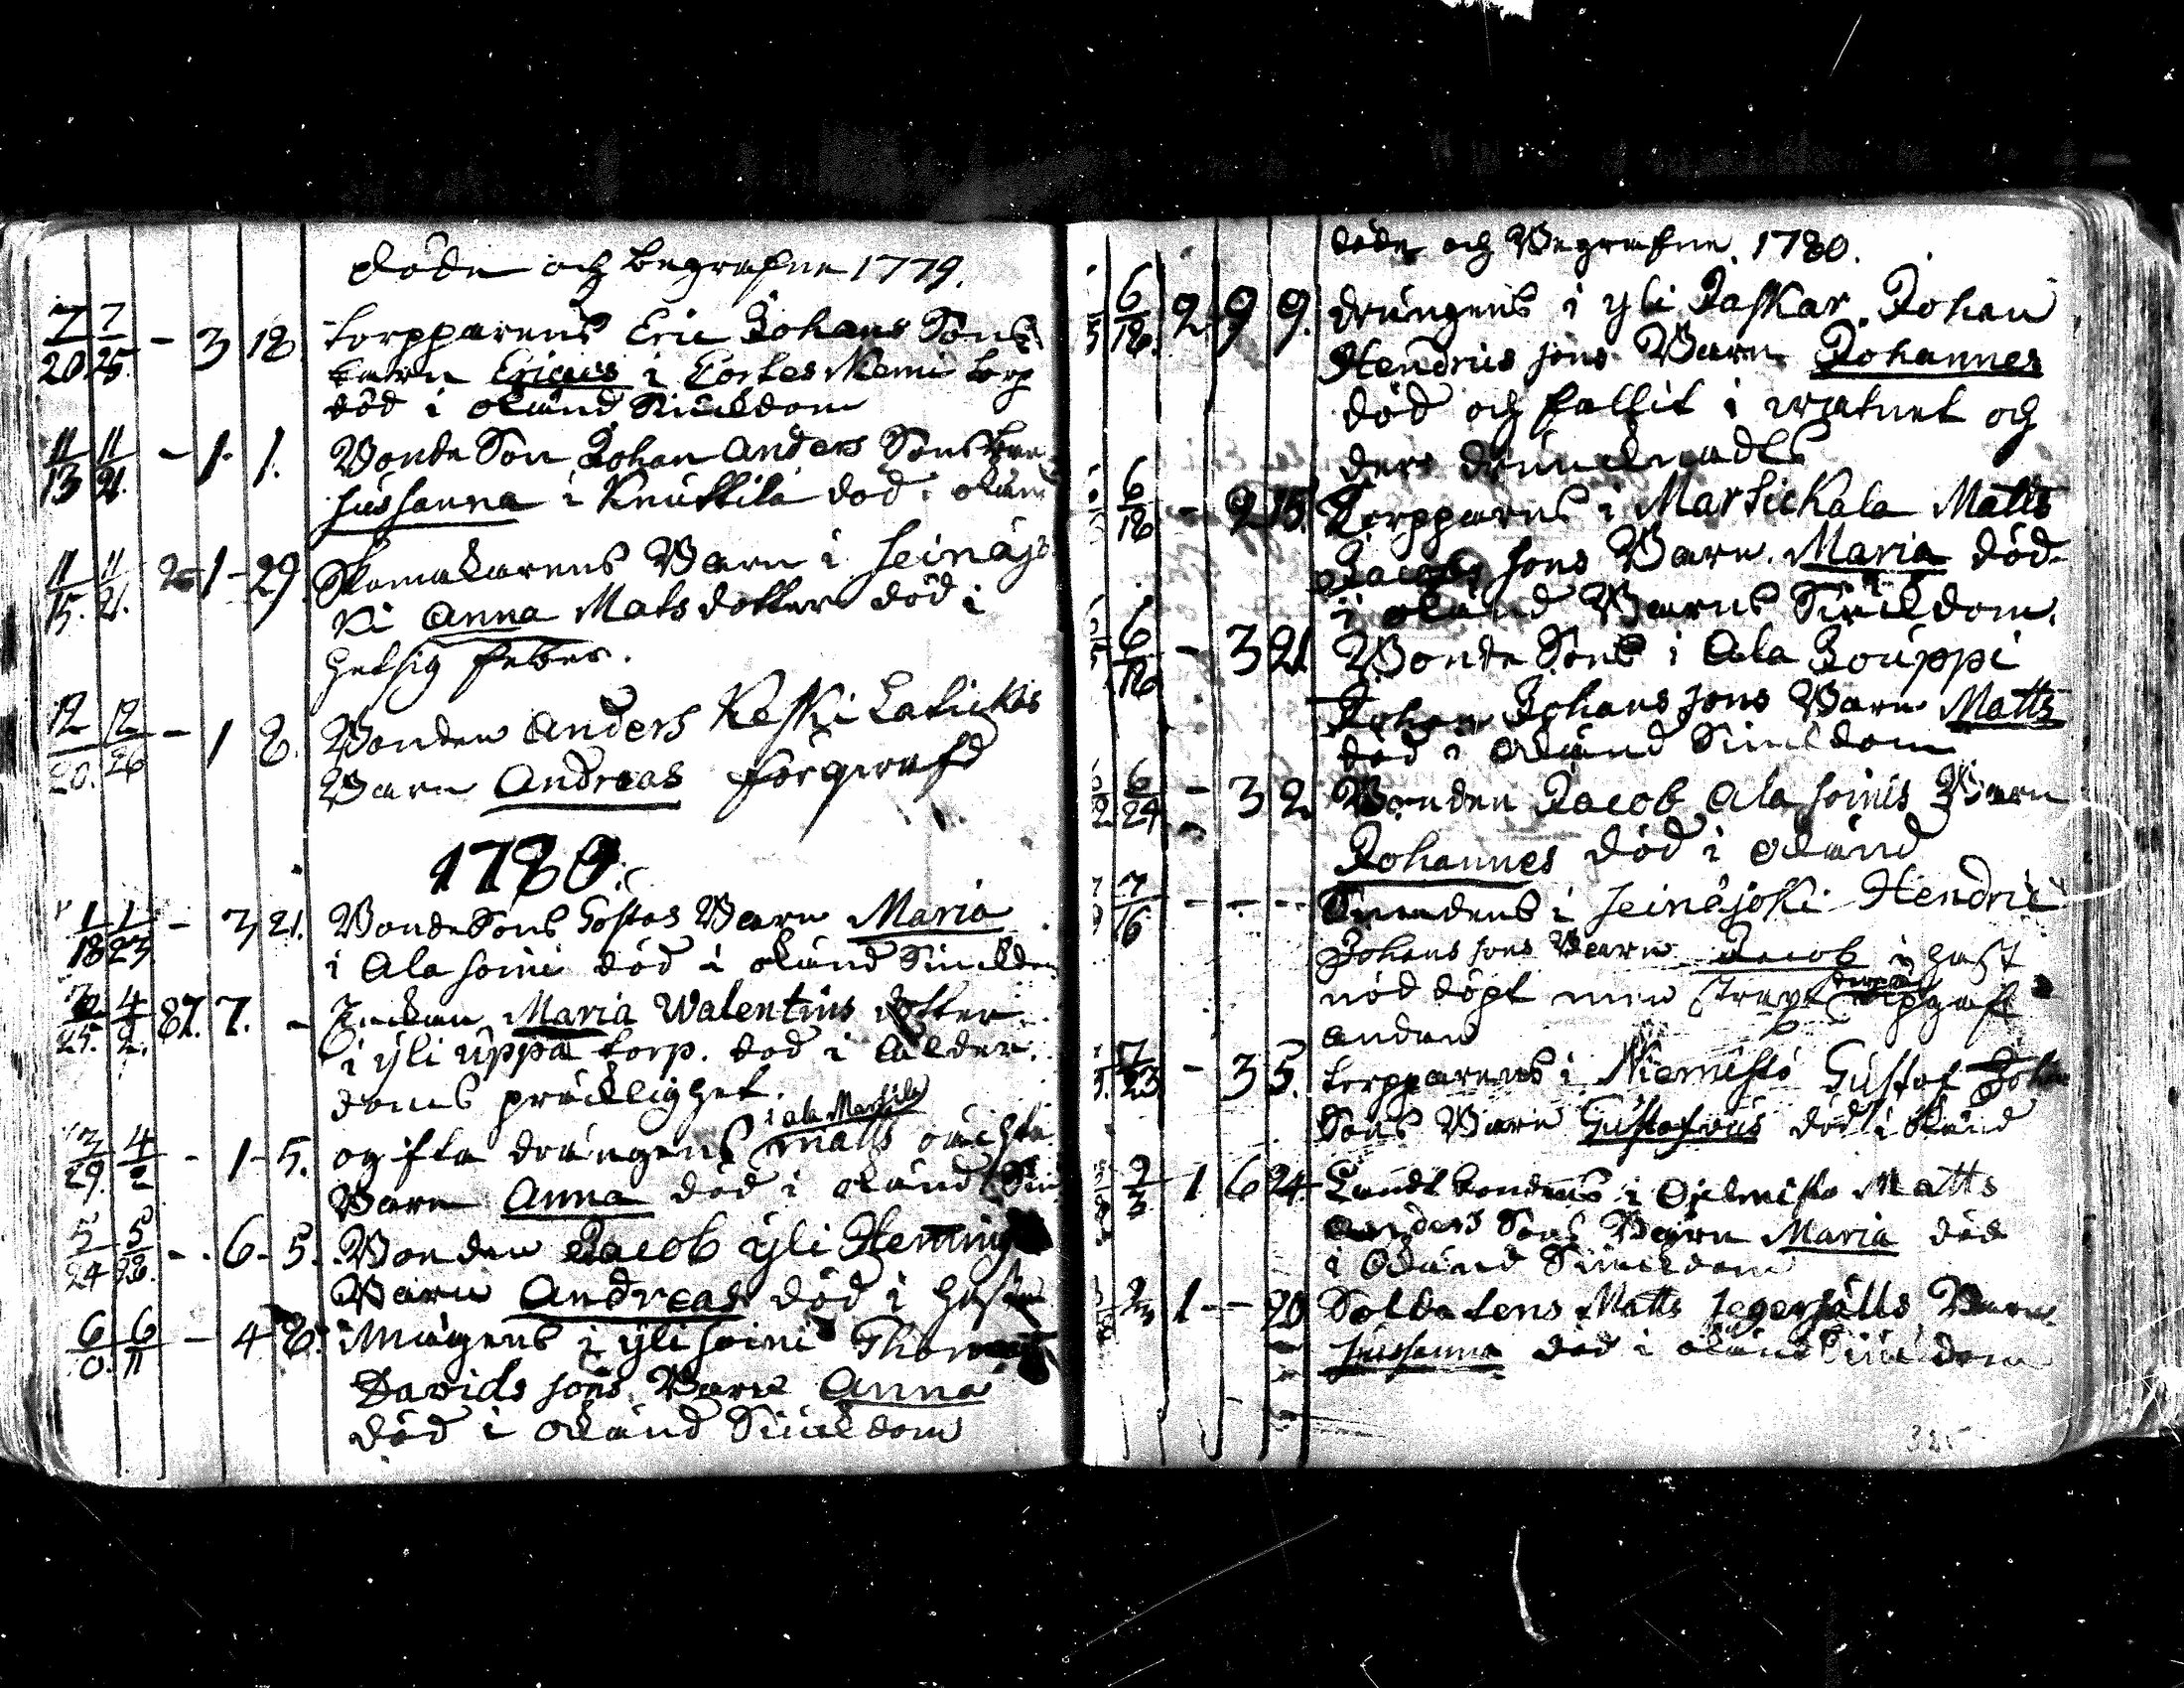 döde och begrafne 1779.
7/20 7/25 - 3 18 torpparens Eric Johans Sons
barn Ericus i torp
död i okänd Siukdom
11/13 11/21. - 1. 1. Bonde Son Johan Anders Sons
Sussanna i Knuttila död i okänd
11/15. 11/21. 2-1-29. Skomakarens Barn i Seinäjo
ki Anna Mats dotter död i
hetsig feber.
12/20. 12/26 - 1 8. Bonden Anders Keski Latickas
Barn Andreas förqwafd
1780.
1/18 1/23 - 3 21. Bonde Sons Göstas Barn Maria
i Ala Soini död i okänd Siukdom
25. 4/2. 87. 7. - Enckan Maria Walentins dotter
i yli Uppa torp. död i ålder-
doms präcklighet.
i ala Marttila
3/29. 4/2 - 1-5. ogifta drängens Matts
Barn Anna död i okänd Siuk
5/24 5/28. - 6-5. Bonden Jacob yli Hemming
Barn Andreas död i
6/0. 6/11 - 4 8. Mågens i yli Soini Thomas
Davids Sons Barn Anna
död i okänd Siukdom
döde och Begrafne. 1780.
6/18. 2. 9 9. drängens i yli Jaskar. Johan
Hendrics Sons Barn Johannes
död och fallit i watnet och
der druncknades
6/18 - 2 15. Torpparens i Martickala Matts
Jacobs Sons Barn Maria död
i okänd Barns Siukdom.
6/18 - 3 21 Bonde Sons i Ala Jouppi
Johan Johans Sons Barn Matts
död i okänd Siukdom
6/24 - 3 2 Bonden Jacob Ala Soinis Barn
Johannes död i okänd
7/16 - - - Smedens i Seinäjoki Hendric
Johans Sons Barn Jacob i hast
nöd döpt men strax
andan
7/23 - 3 5. torpparens i Niemistö Gustaf Johan
Sons Barn Gustafvus död i okänd
9/3 1 6 24. Landtbondens i Matts
Anders Sons Barn Maria död
i okänd Siukdom
1 - - 20 Soldatens Matts Barn
Sussanna död i okänd Siukdom